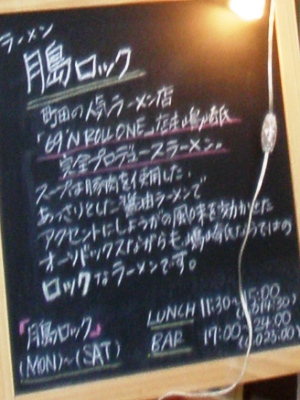 ラーメン
月島ロック
町田の人気ラーメン店
「69'N ROLL ONE」店主嶋崎氏
完全プロデュースラーメン。
スープは豚肉を使用した
あっさりとした醤油ラーメンで
アクセントにしょうがの風味を効かせた
オーソドックスながらも、嶋崎氏ならではの
ロックなラーメンです。
『月島ロック』 LUNCH 11:30~15:00
(14:30)
(MON)~(SAT) BAR 17:00~24:00
(23:00)